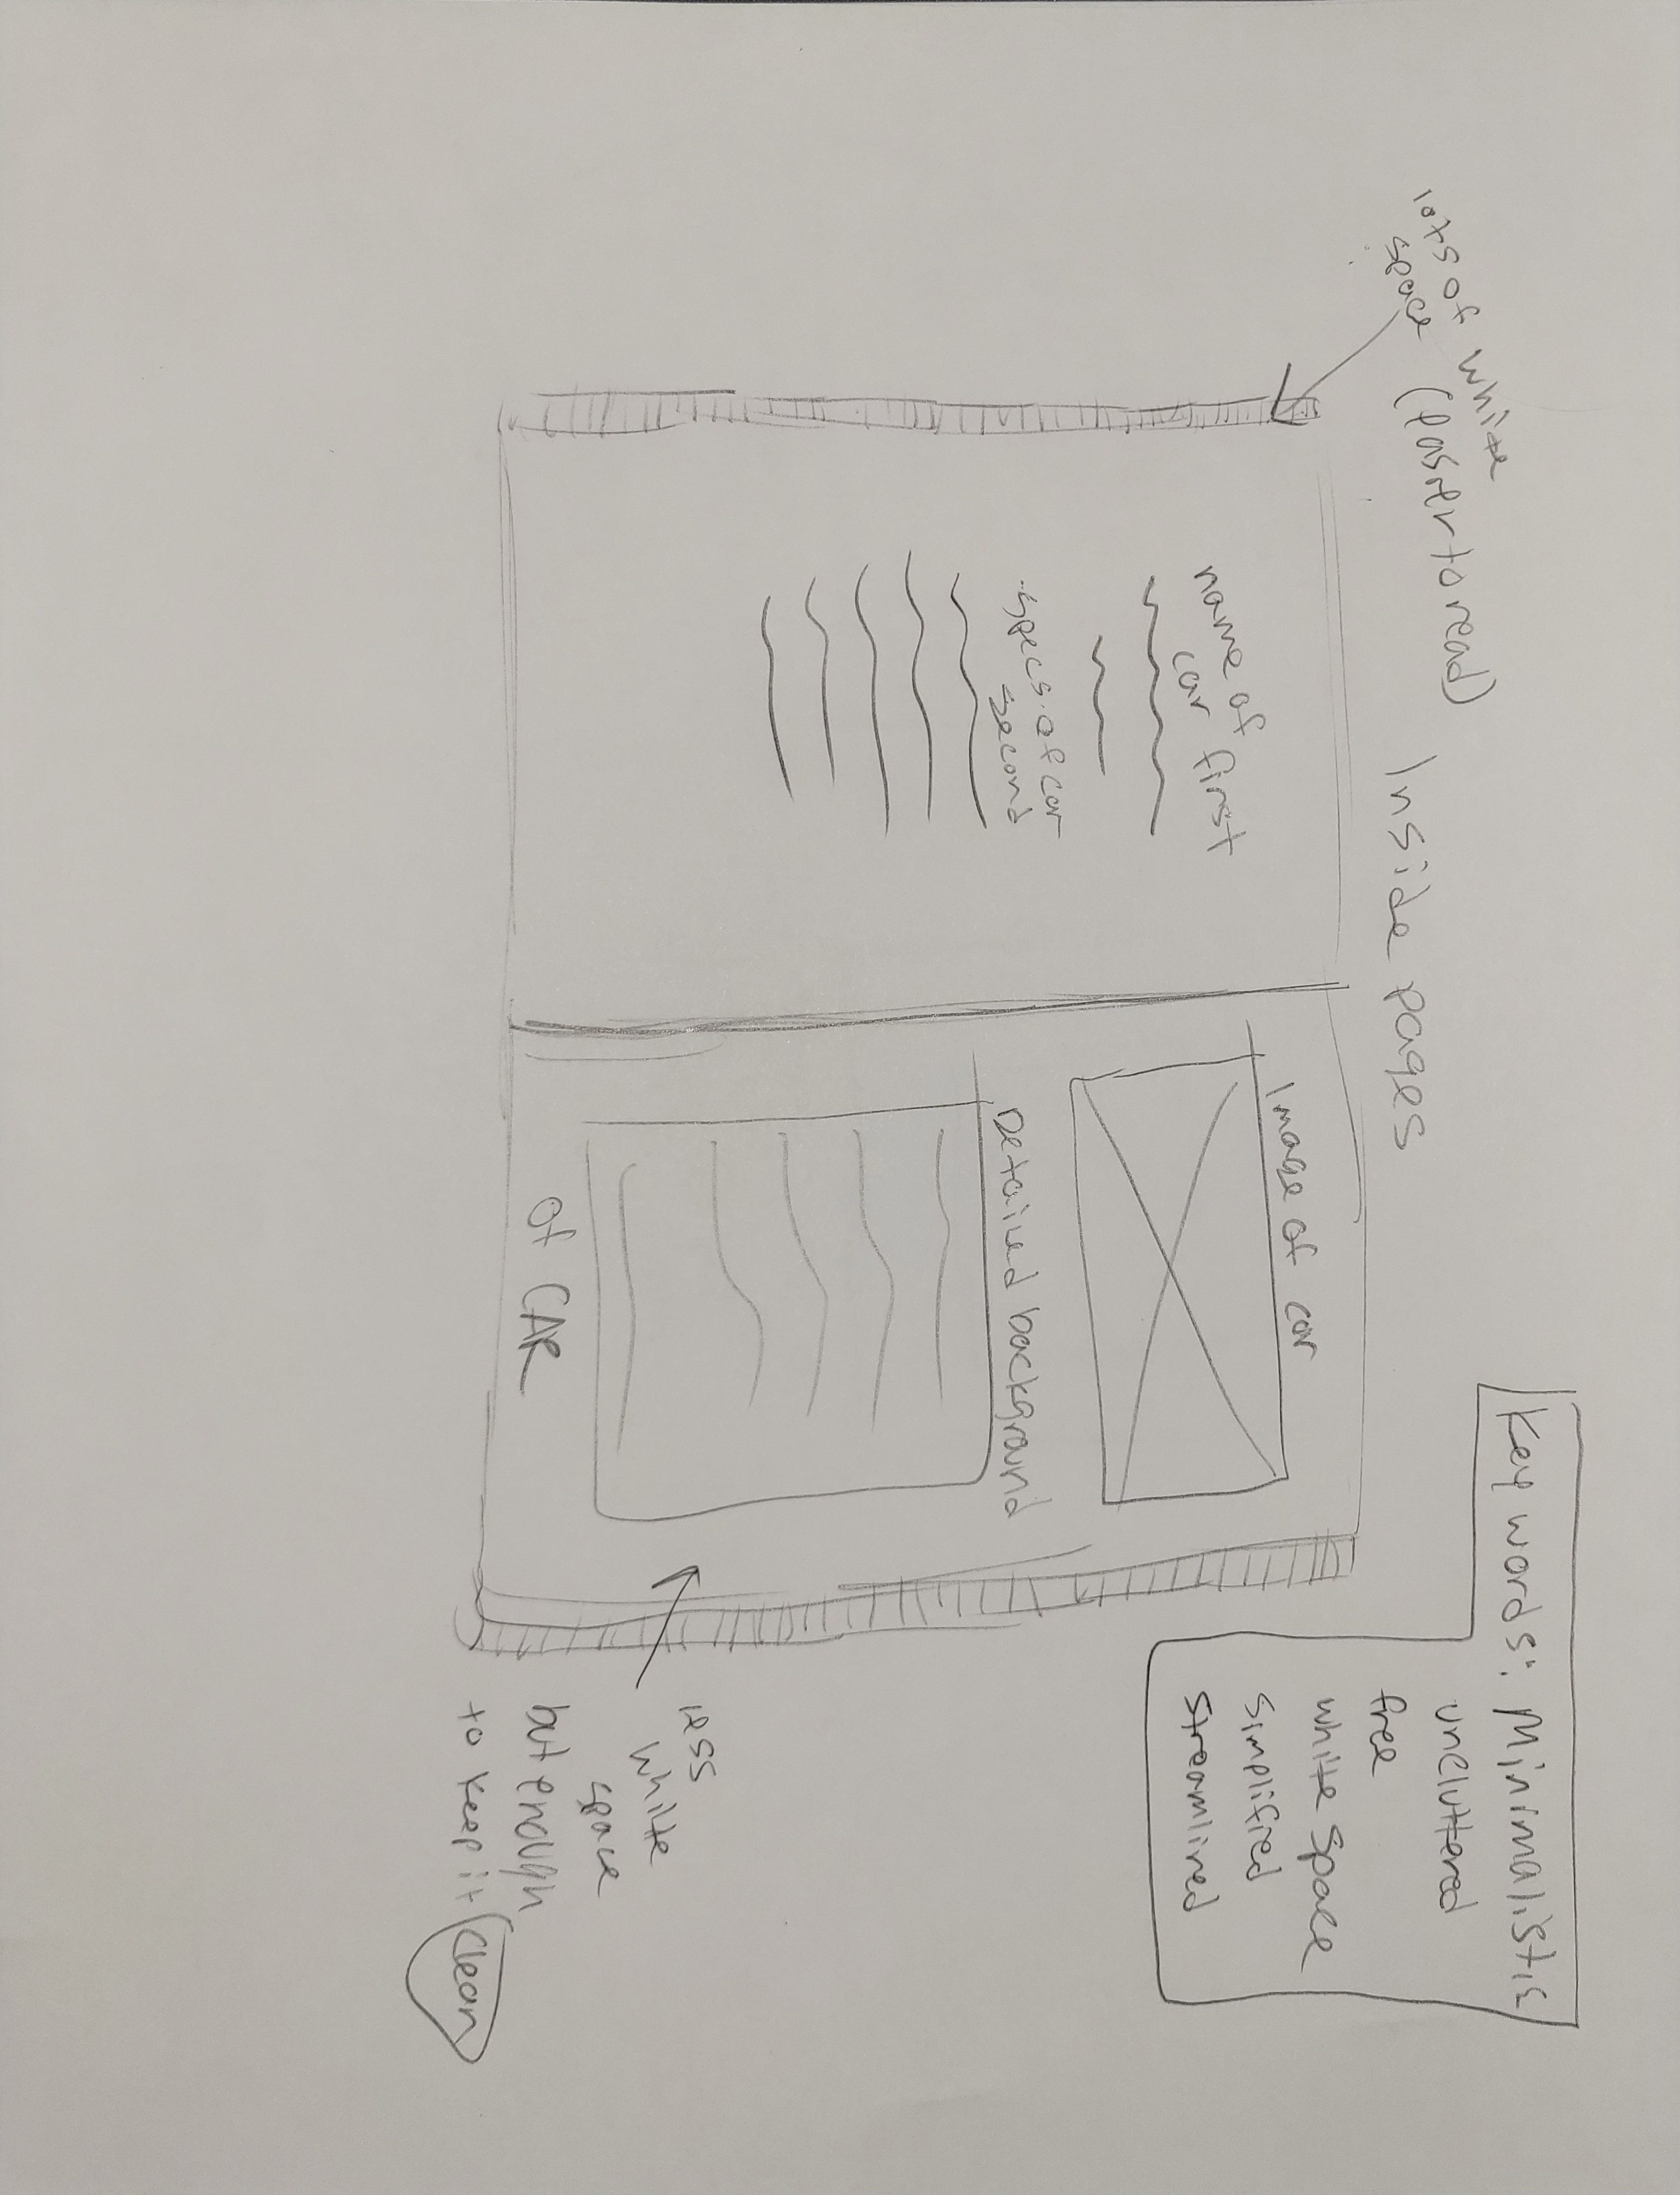 Key words: Minimalistic
uncluttered
free
white space
simplified
streamlined
lots of white
space (easier to read)
Inside pages
name of
car first
specs of car
second
Image of car
Detailed background
of CAR
less
white
space
but enough
to keep it clean